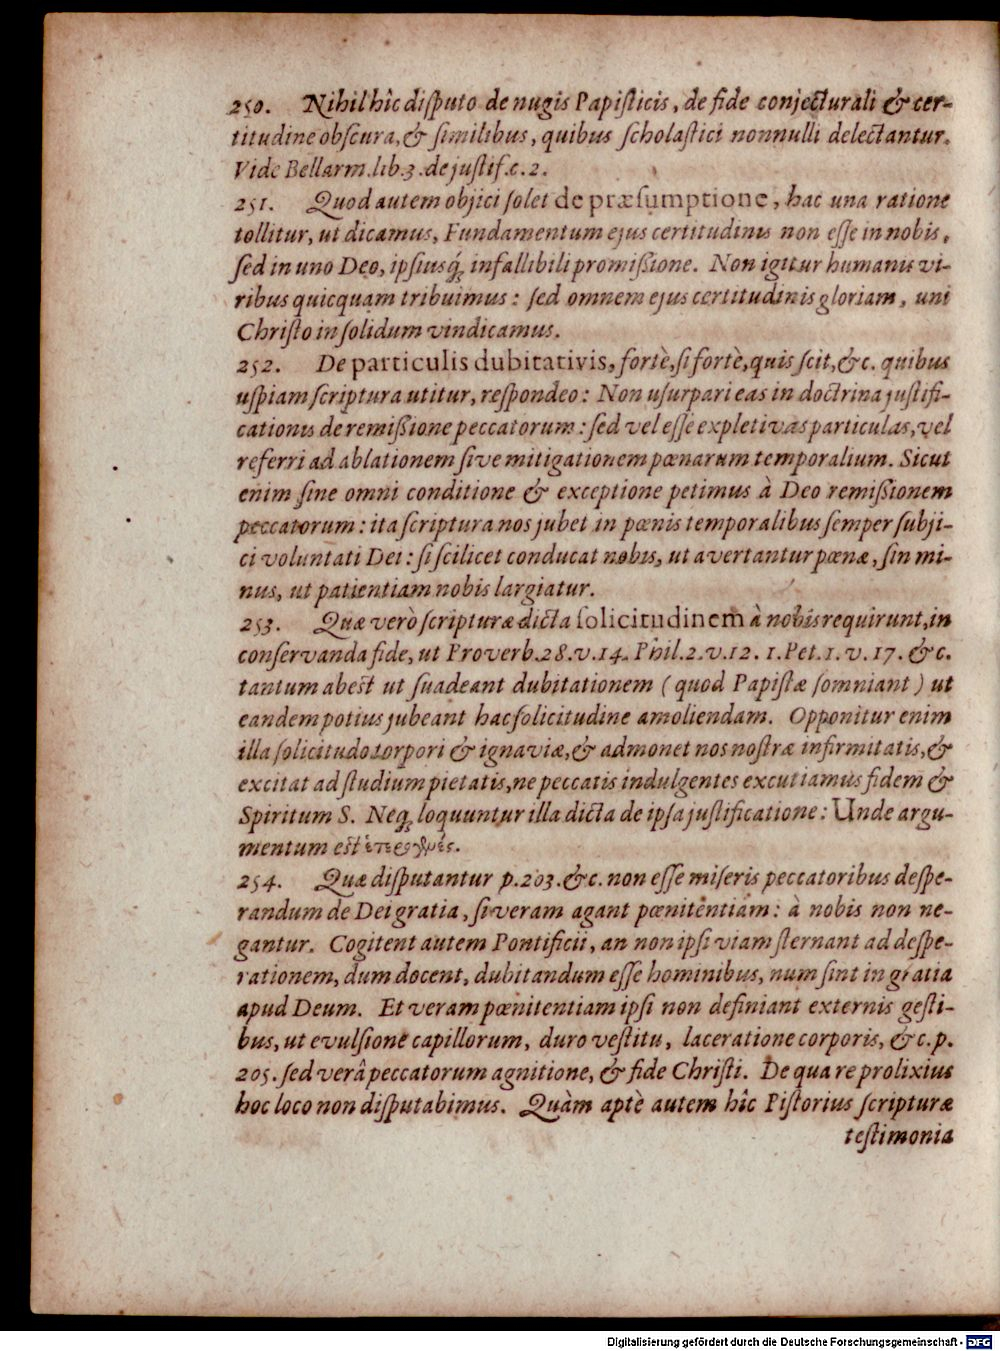 250. Nihil hîc disputo de nugis Papisticis, de fide conjecturali & cer-
titudine obscura, & similibus, quibus scholastici nonnulli delectantur.
Vide Bellarm. lib. 3. de justif. c. 2.
251. Quod autem objici solet de præsumptione, hac una ratione
tollitur, ut dicamus, Fundamentum ejus certitudinis non esse in nobis,
sed in uno Deo, ipsiusq́; infallibili promißione. Non igitur humanis vi-
ribus quicquam tribuimus: sed omnem ejus certitudinis gloriam, uni
Christo in solidum vindicamus.
252. De particulis dubitativis, fortè, si fortè, quis scit, &c. quibus
uspiam scriptura utitur, respondeo: Non usurpari eas in doctrina justifi-
cationis de remißione peccatorum: sed vel esse expletivas particulas, vel
referri ad ablationem sive mitigationem pœnarum temporalium. Sicut
enim sine omni conditione & exceptione petimus à Deo remißionem
peccatorum: ita scriptura nos jubet in pœnis temporalibus semper subji-
ci voluntati Dei: si scilicet conducat nobis, ut avertantur pœnæ, sin mi-
nus, ut patientiam nobis largiatur.
253. Quæ verò scripturæ dicta solicitudinem à nobis requirunt, in
conservanda fide, ut Proverb. 28. v. 14. Phil. 2. v. 12. 1. Pet. 1. v. 17. &c.
tantum abest ut suadeant dubitationem (quod Papistæ somniant) ut
eandem potius jubeant hac solicitudine amoliendam. Opponitur enim
illa solicitudo torpori & ignaviæ, & admonet nos nostræ infirmitatis, &
excitat ad studium pietatis, ne peccatis indulgentes excutiamus fidem &
Spiritum S. Neq; loquuntur illa dicta de ipsa justificatione: Unde argu-
mentum est
254. Quæ disputantur p. 203. &c. non esse miseris peccatoribus despe-
randum de Dei gratia, si veram agant pœnitentiam: à nobis non ne-
gantur. Cogitent autem Pontificii, an non ipsi viam sternant ad despe-
rationem, dum docent, dubitandum esse hominibus, num sint in gratia
apud Deum. Et veram pœnitentiam ipsi non definiant externis gesti-
bus, ut evulsione capillorum, duro vestitu, laceratione corporis, &c. p.
205. sed verâ peccatorum agnitione, & fide Christi. De qua re prolixius
hoc loco non disputabimus. Quàm aptè autem hîc Pistorius scripturæ
testimonia
Digitalisierung gefördert durch die Deutsche Forschungsgemeinschaft - DFG